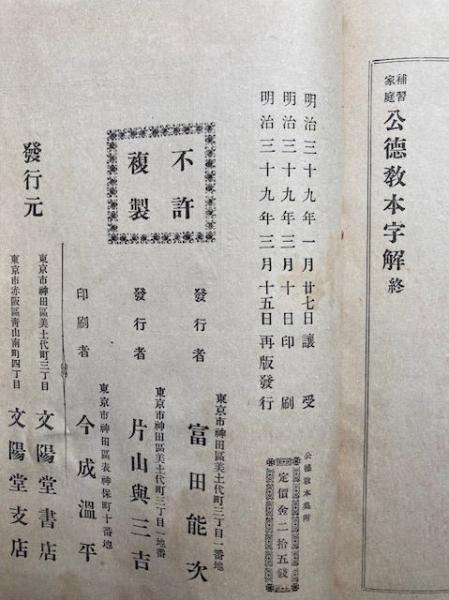 補習
家庭
公德教本字解終
明治三十九年一月廿七日讓受
明治三十九年三月十日印刷
明治三十九年三月十五日再版發行
公德教本奥附
定價金二拾五錢
不許
複製
發行者
東京市神田區美土代町三丁目一番地
富田能次
發行者
東京市神田區美土代町三丁目一地番
片山與三吉
印刷者
東京市神田區表神保町十番地
今成溫平
發行元
東京市神田區美土代町三丁目
文陽堂書店
東京市赤阪區靑山南町四丁目
文陽堂支店